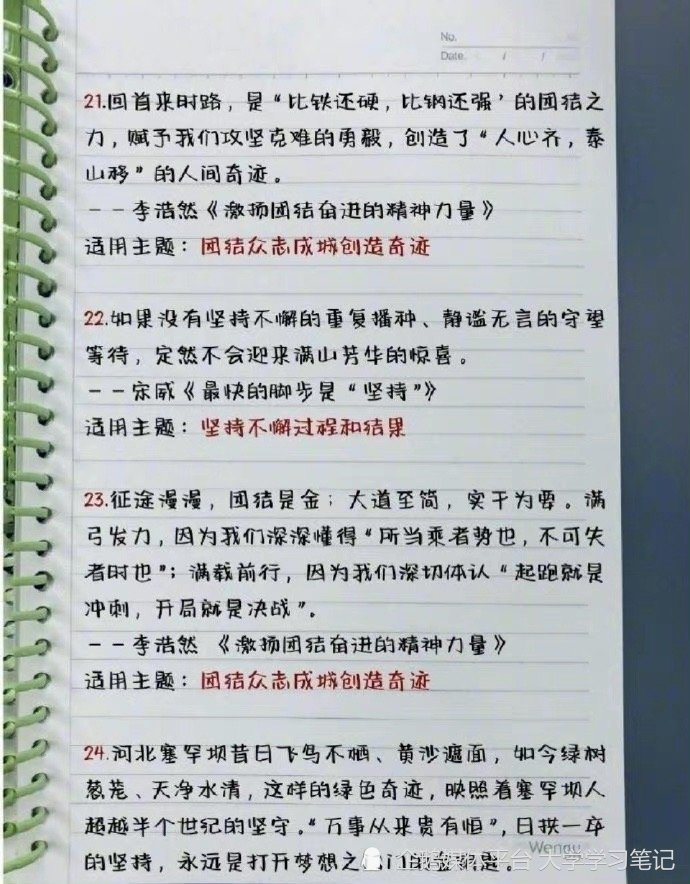 No.
Date. / /
21.回首来时路，是“比铁还硬，比钢还强’的团结之
力，赋予我们攻坚克难的勇毅，创造了“人心齐，泰
山移”的人间奇迹。
——李浩然《激扬团结奋进的精神力量》
适用主题：团结众志成城创造奇迹
22.如果没有坚持不懈的重复播种、静谧无言的守望
等待，定然不会迎来满山芳华的惊喜。
——宗威《最快的脚步是“坚持”》
适用主题：坚持不懈过程和结果
23.征途漫漫，团结是金；大道至简，实干为要。满
弓发力，因为我们深深懂得“所当乘者势也，不可失
者时也”；满载前行，因为我们深切体认“起跑就是
冲刺，开局就是决战”。
——李浩然 《激扬团结奋进的精神力量》
适用主题：团结众志成城创造奇迹
24.河北塞罕坝昔日飞鸟不栖、黄沙遮面，如今绿树
葱茏、天净水清，这样的绿色奇迹，映照着塞罕坝人
超越半个世纪的坚守。“万事从来贵有恒”，日拱一卒
的坚持，永远是打开梦想之门的
Wengu
平台 大学学习笔记